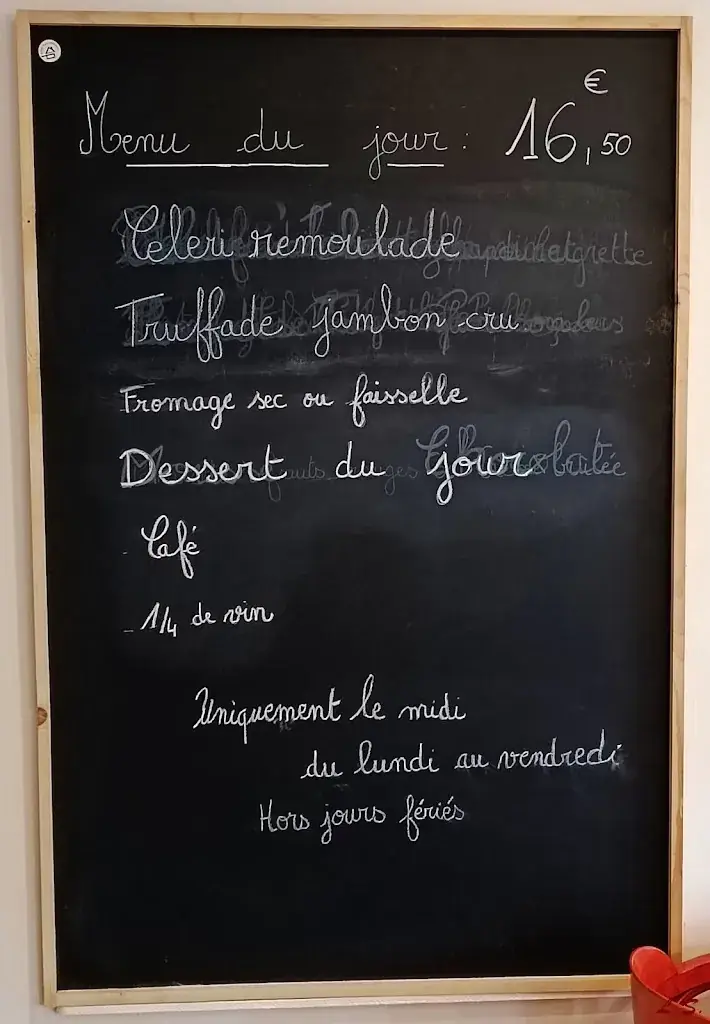 Menu du jour : 16,50 €
Celeri rémoulade
Truffade jambon cru
Fromage sec ou faisselle
Dessert du jour
- Café
- 1/4 de vin
Uniquement le midi
du lundi au vendredi
Hors jours fériés